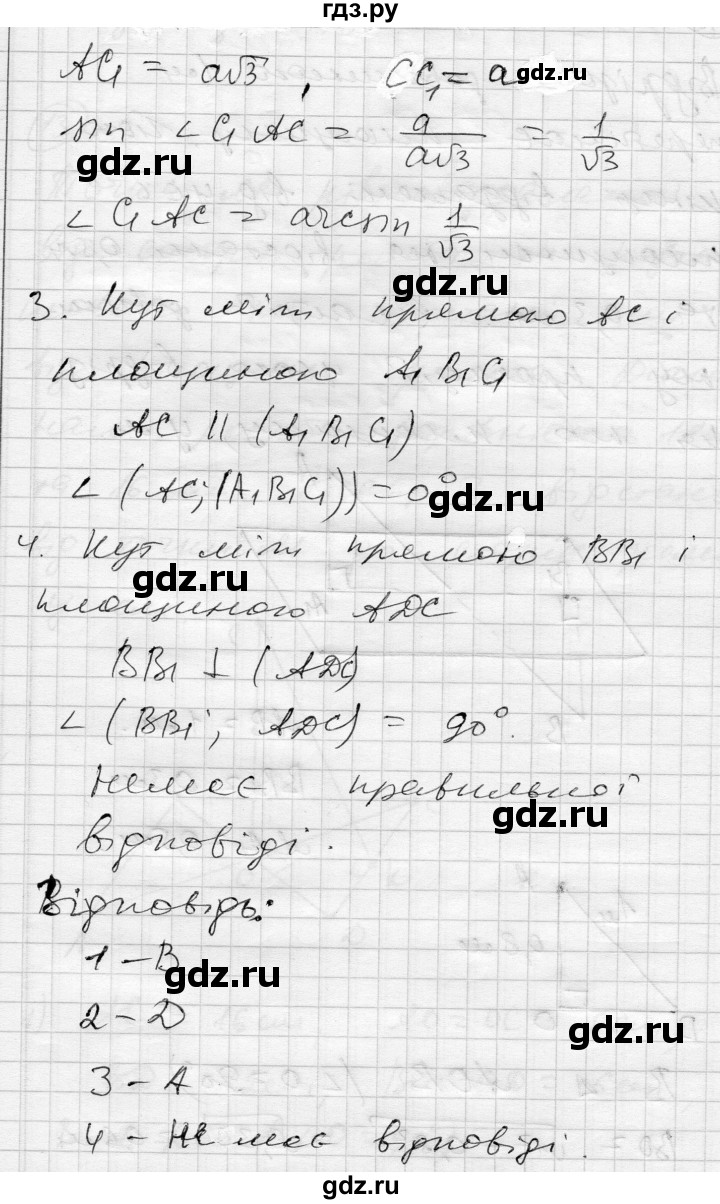 гдз.ру
AC₁ = a√3, CC₁ = a
sin ∠C₁AC = a/a√3 = 1/√3
gdz.ru gdz.ru
∠C₁AC = arcsin 1/√3
gdz.ru
3. Кут між прямою AC і
площиною A₁B₁C₁
AC || (A₁B₁C₁)
∠(AC; (A₁B₁C₁)) = 0°
gdz.ru
4. Кут між прямою BB₁ і
gdz.ru
площиною ADC
BB₁ ⊥ (ADC)
∠(BB₁; ADC) = 90°.
Немає правильної
gdz.ru
відповіді.
Відповідь:
1 – B
gdz.ru
2 – D
gdz.ru
3 – A
4 – Немає відповіді.
gdz.ru